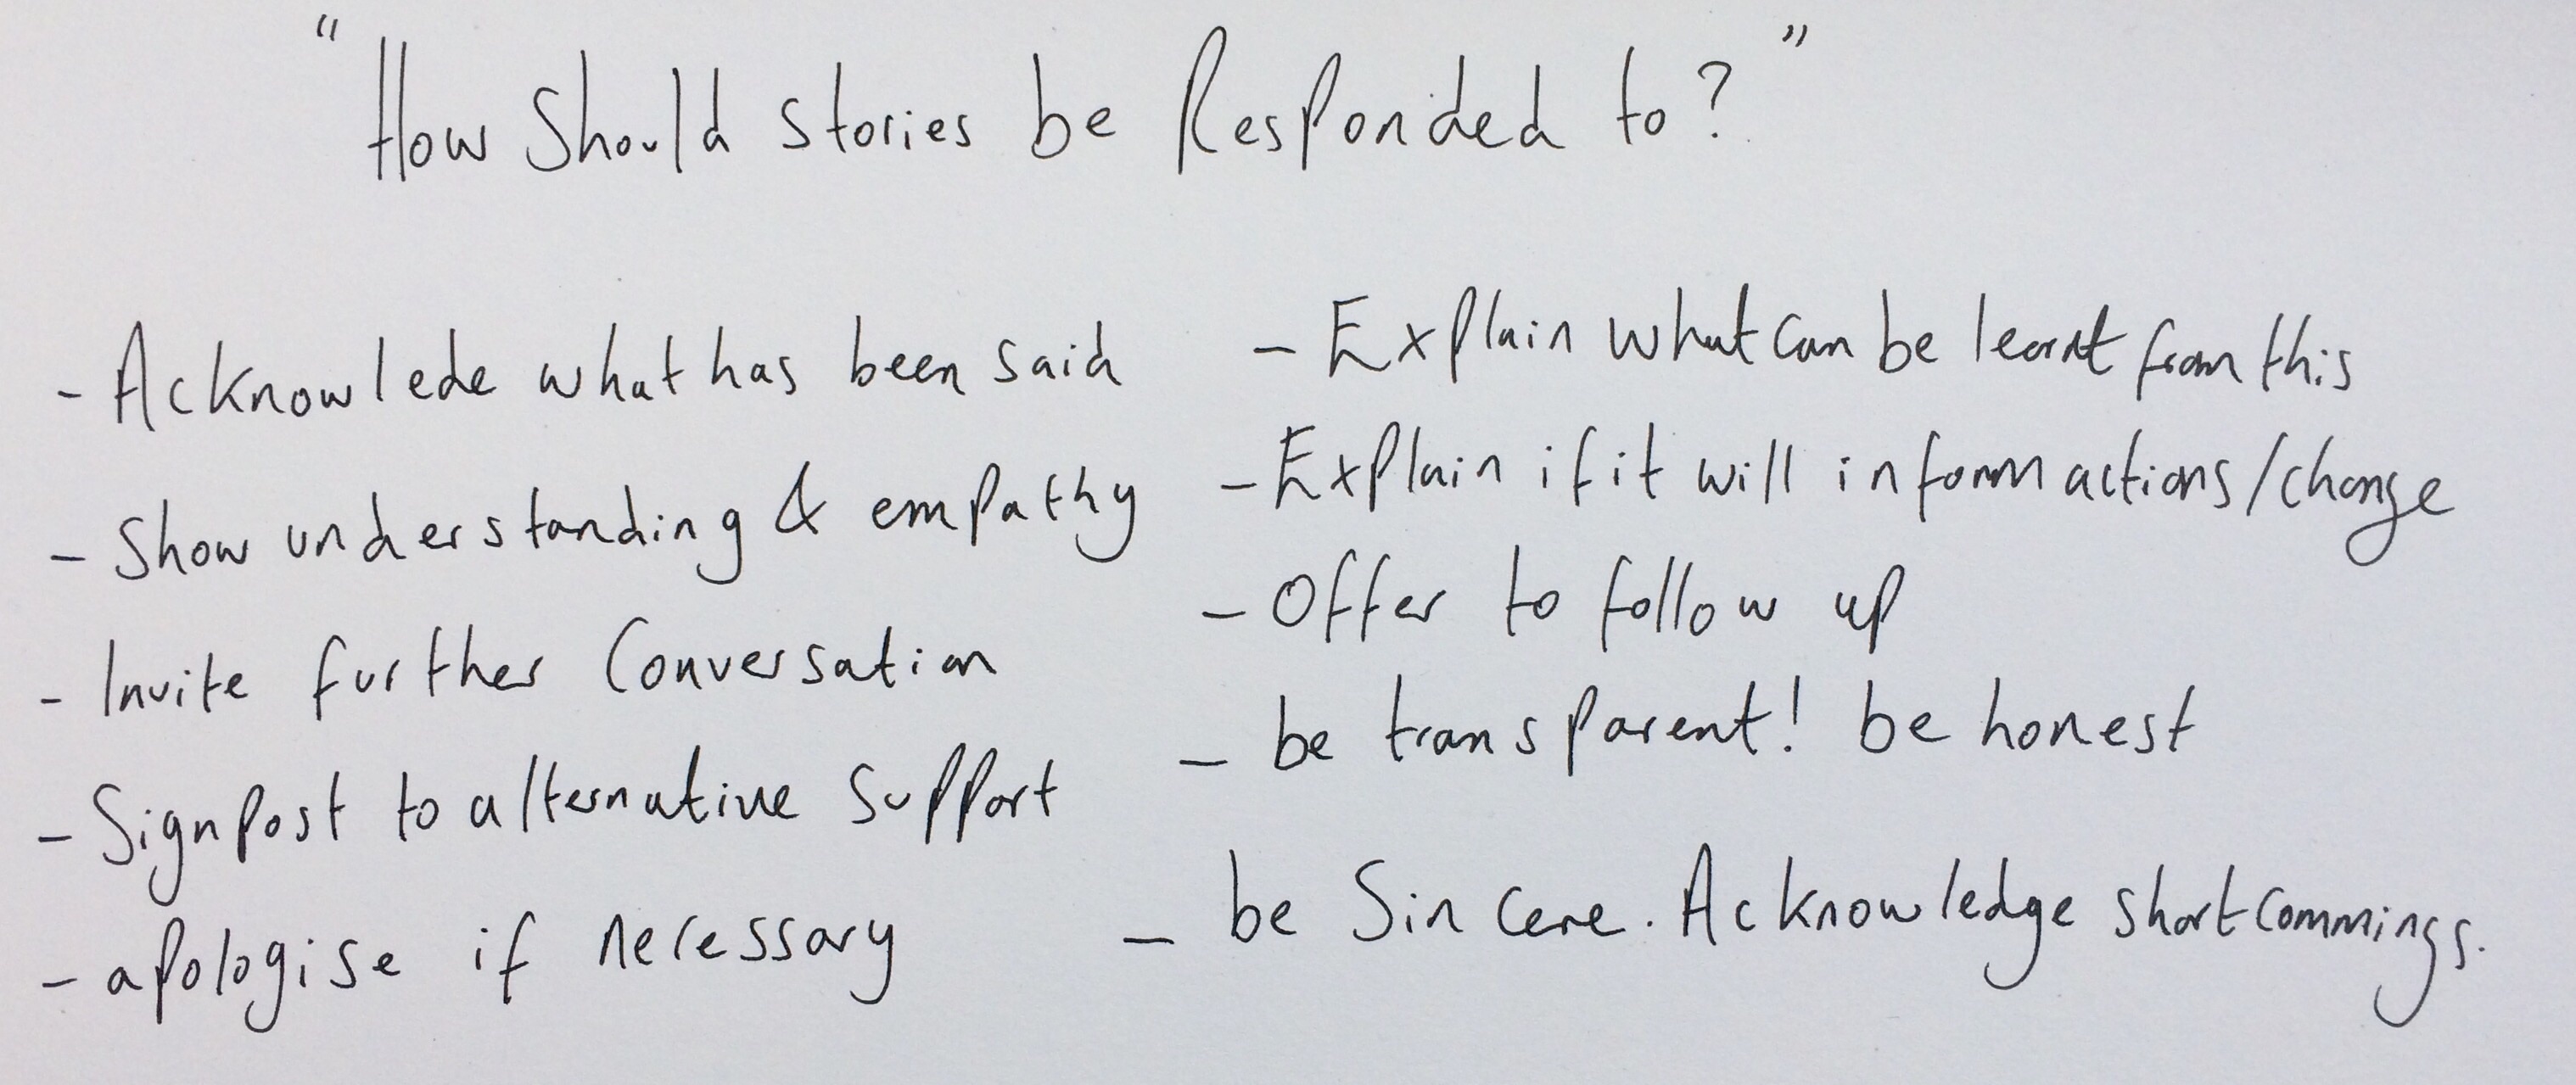 "How Should stories be Responded to?"
- Acknowlede what has been said
- Show understanding & empathy
- Invite further Conversation
- Signpost to alternative Support
- apologise if necessary
- Explain what can be learnt from this
- Explain if it will inform actions/change
- Offer to follow up
- be transparent! be honest
- be Sincere. Acknowledge shortcommings.